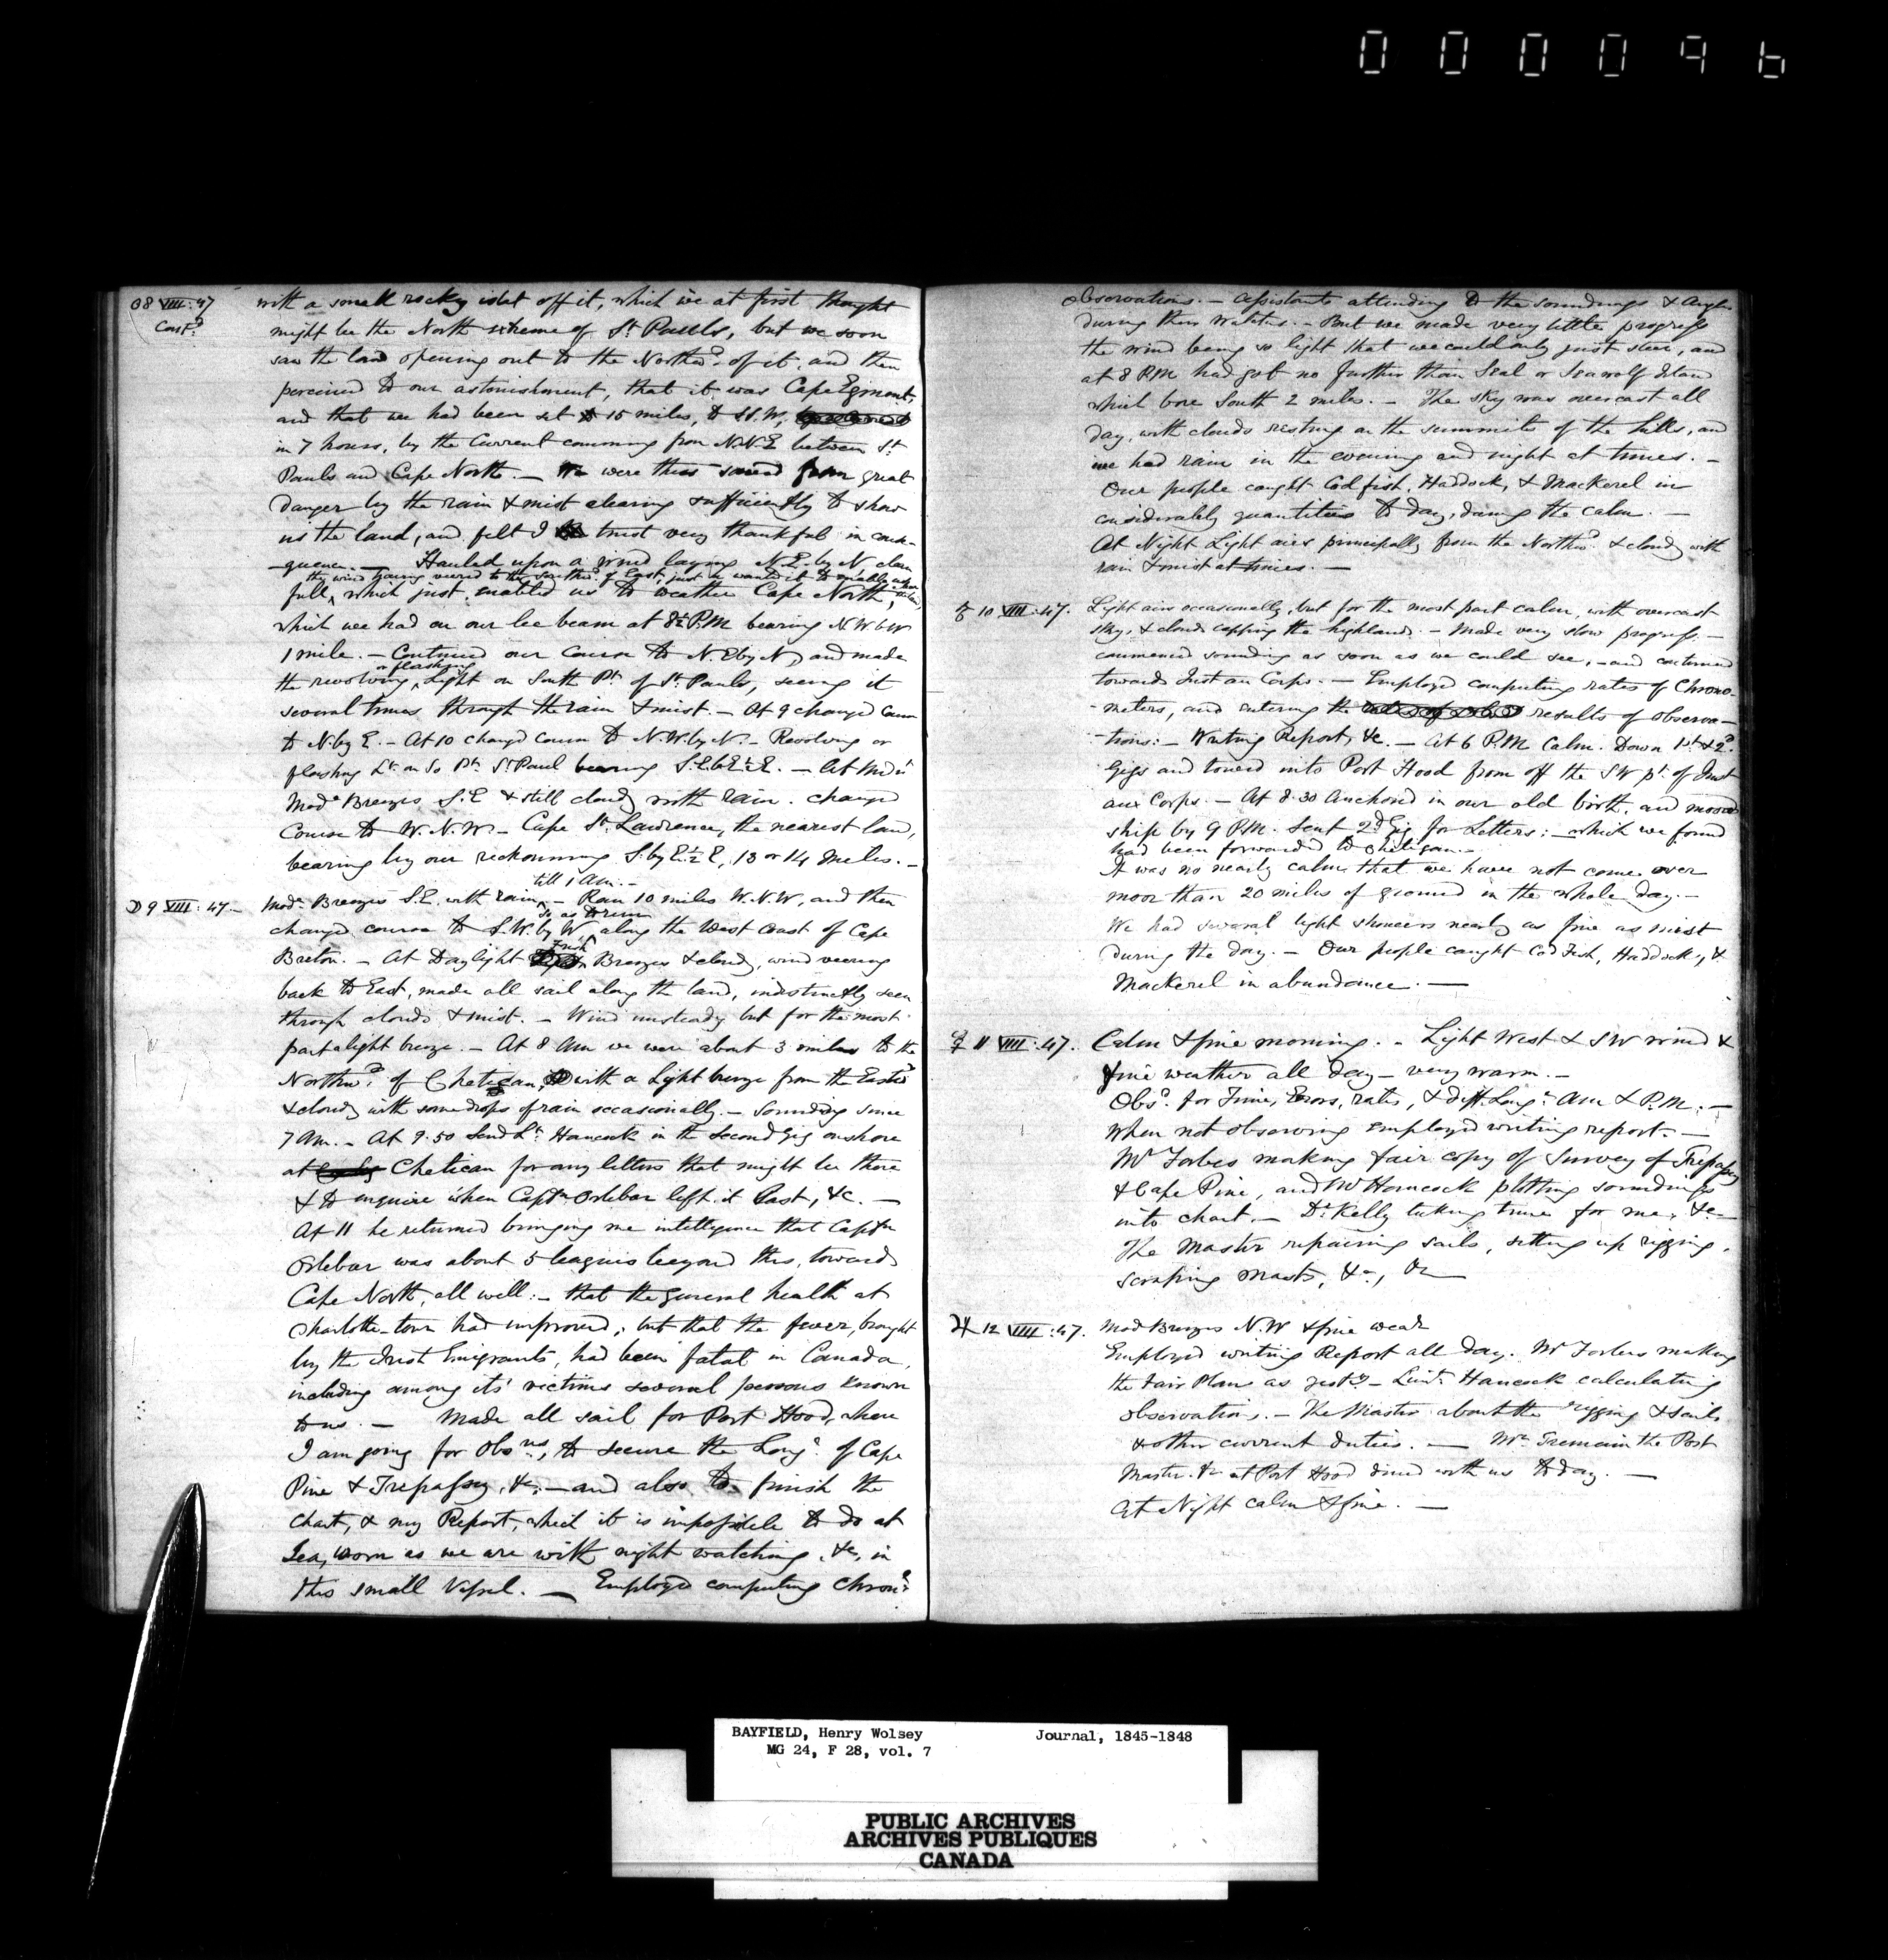 000096
☉ 8 VIII:47
Con.d
with a small rocky islet off it, which we at first thought
might be the North extreme of St. Pauls, but we soon
saw the land opening out to the Northwd. of it, and then
perceived to our astonishment, that it was Cape Egmont,
and that we had been set 15 miles, to S.W,
in 7 hours, by the Current comming from N.N.E between St.
Pauls and Cape North. — We were thus saved from great
danger by the rain & mist clearing sufficiently to show
us the land, and felt I trust very thankful in conse-
-quence. — Hauled upon a wind laying N.E. by N clean
the wind having veered to the Southwd. of East, just as wanted it to enable
full, which just enabled us to weather Cape North,
which we had on our lee beam at 8½ P.M bearing N W b W
1 mile. — Continued our Course to N.E by N, and made
or flashing
the revolving Light on South Pt. of St. Pauls, seeing it
several times through the rain & mist. — At 9 changed Course
to N. by E. — At 10 changed course to N.W. by N. — Revolving or
flashing Lt. on So Pt. St Paul bearing S.E. b E ½ E. — At Midnt
Modte Breezes S.E & still cloudy with rain. Changed
Course to W.N.W. — Cape St. Lawrence, the nearest land,
bearing by our reckonning S. by E. ½ E, 13 or 14 Miles. —
till 1 Am. —
☽ 9 VIII:47. — Modte Breezes S.E. with rain — Ran 10 miles W.N.W, and then
so as to run
changed course to S.W. by W along the West Coast of Cape
Fresh
Breton. — At Daylight Breezes & cloudy, wind veering
back to East, made all sail along the land, indistinctly seen
through clouds & mist. — Wind unsteady but for the most
part a light breeze. — At 8 Am we were about 3 miles to the
Northwd. of Chetican, with a Light breeze from the Eastwd
& cloudy with some drops of rain occasionally. — Sounding since
7 Am. — At 9.50 Send Lt. Hancock in the Second Gig onshore
at Chetican for any letters that might be there
& to enquire when Captn. Orlebar left it last, &c. —
At 11 he returned bringing me intelligence that Captn
Orlebar was about 5 leagues beyond this, towards
Cape North, all well: — that the general health at
Charlotte-town had improved; but that the fever, brought
by the Irish Emigrants, had been fatal in Canada,
including among its' victims several persons known
to us. — Made all sail for Port Hood, where
I am going for Obsns, to secure the Longe. of Cape
Pine & Trepassey, &c; — and also to finish the
Chart, & my Report, which it is impossible to do at
Sea, worn as we are with night watching, &c, in
this small Vessel. — Employed computing Chronr
observations. — Assistants attending to the soundings & Angles
during their watches. — But we made very little progress
the wind being so light that we could only just steer, and
at 8 P.M had got no further than Seal or Seawolf Island
which bore South 2 miles. — The sky was overcast all
day, with clouds resting on the summits of the hills, and
we had rain in the evening and night at times. —
Our people caught Codfish, Haddock, & Mackerel in
considerably quantities to day, during the calm. —
At Night Light airs principally from the Northwd. & cloudy with
rain & mist at times. —
♂ 10 VIII:47. Light airs occasionally, but for the most part calm, with overcast
sky, & clouds capping the highlands. — Made very slow progress. —
commenced sounding as soon as we could see, — and continued
towards Just au Corps. — Employed computing rates of Chrono-
-meters, and entering the results of observa-
-tions: — Writing Report, &c. — At 6 P.M Calm. Down 1st. & 2d.
Gigs and towed into Port Hood from off the SW pt. of Just
aux Corps. — At 8.30 Anchored in our old birth, and moored
ship by 9 P.M. Sent 2d Gig for Letters: — which we found
had been forwarded to Chetican. —
It was so nearly calm that we have not come over
moor than 20 miles of ground in the whole day. —
We had several light showers nearly as fine as mist
during the day. — Our people caught Cod Fish, Haddock, &
Mackerel in abundance. —
☿ 11 VIII:47. Calm & fine morning. — Light West & SW wind &
fine weather all day — very warm. —
Obsd. for Time, Errors, rates, & diff. Longe. Am & P.M. —
When not observing employed writing report. —
Mr Forbes making fair copy of Survey of Trepassey
& Cape Pine, and Mr Hancock plotting soundings
into chart. — Dr. Kelly taking times for me, &c —
The Master repairing sails, setting up rigging,
scraping Masts, &c, &c —
♃ 12 VIII:47. Mod Breezes N.W & fine wear
Employed writing Report all day. Mr Forbes making
the Fair Plans as yesty — Lieut. Hancock calculating
observations. — The Master about the rigging & sails
& other current duties. — Mr. Tremain the Post
Master &c at Port Hood dined with us to day. —
At Night calm & fine. —
BAYFIELD, Henry Wolsey Journal, 1845-1848
MG 24, F 28, vol. 7
PUBLIC ARCHIVES
ARCHIVES PUBLIQUES
CANADA